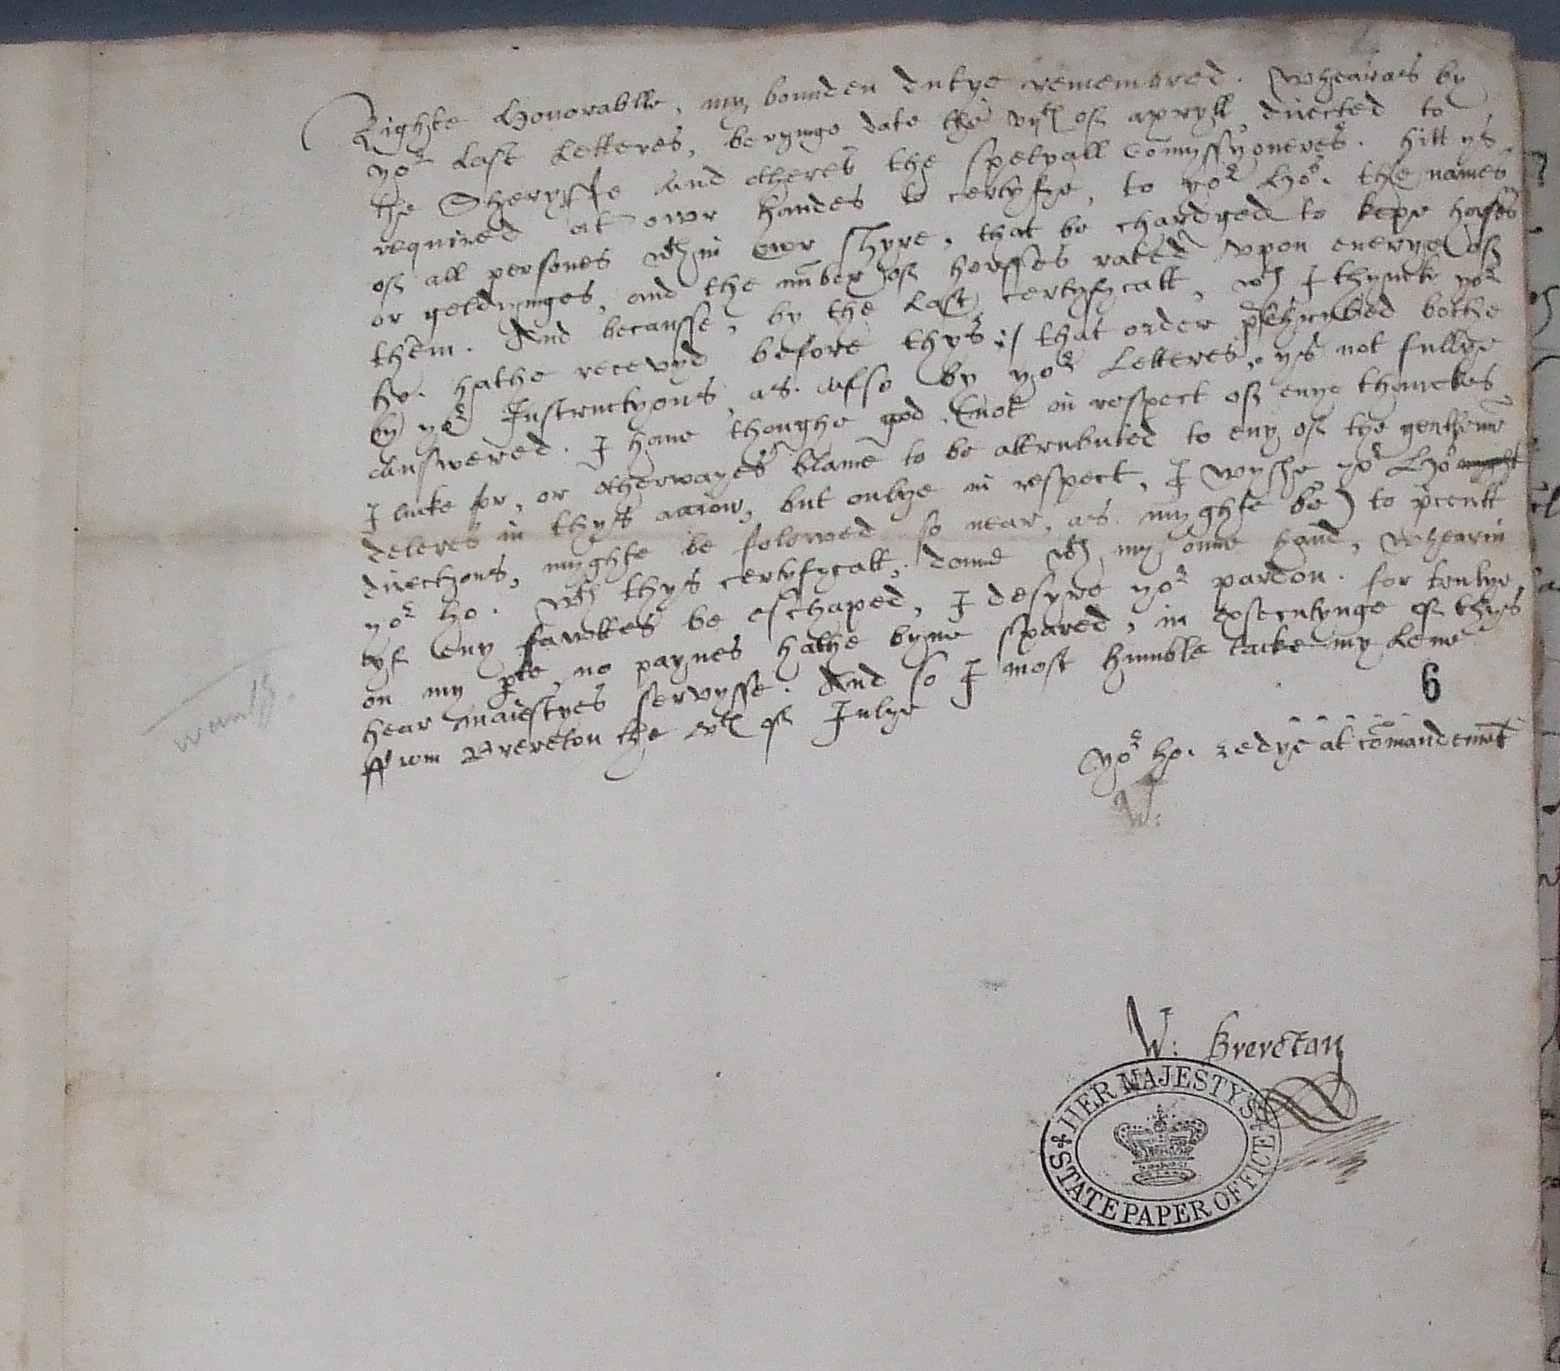 Righte Honorablle, my bounden dutye remembred. Whearas by
yor last Letteres, berynge date the vjth of apryll, directed to
the Sheryffe and otheres the speycall comyssyoneres. hitt ys
required at owr handes to certyfye, to yor Ho: the names
of all persones wthin owr shyre, that be chardged to kepe horses
or geldynges, and the nuber of horsses rated vpon euerye of
them. And becausse, by the last certyfycatt, wch I thynck yor
ho. hathe recevyd before thys, that order prescrubed bothe
by yor Instructyons, as also by yor Letteres, ys not fullye
answered. I haue thoughe god (not in respect of enye thanckes
I luke for, or otherwayes blame to be attrubuted to eny of the gentleme
deleres in thys accion, but onlye in respect, I wyshe yor Ho might
directyons, myghte be folowed so near, as myghte be) to pcent
yor ho. wth thys certyfycatt, donne wth my oune hand, Whearin
yf eny fawttes be eschaped, I desyre yor pardon. for trulye
on my pte, no paynes hathe byne spared, in exsecutynge of thys
hear maiestyes servysse. And so I most humble tacke my leue
ffrom Brereton the xth of Julye
6
yor ho. redye at comandemt
W:
W: Breretan
HER MAJESTYS
STATE PAPER OFFICE